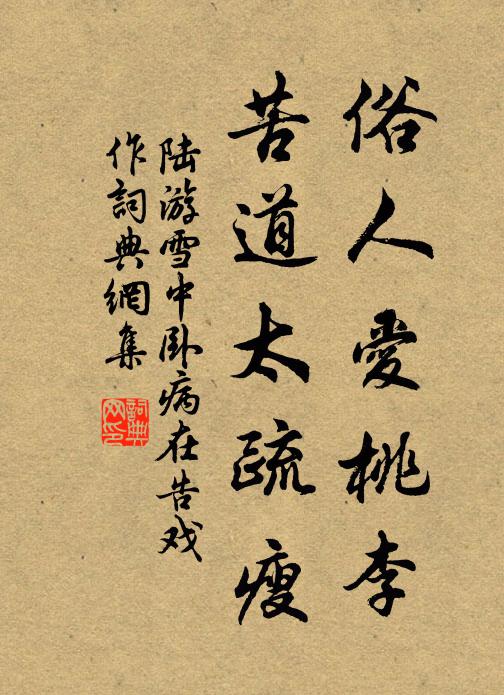 俗人愛桃李
苦道太疏瘦
陆游雪中卧病在告戏
作詞典網集
詞典
网印